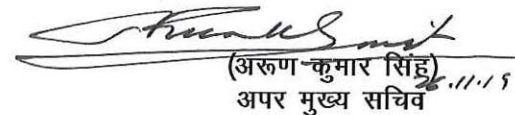 (अरूण कुमार सिंह)
26.11.19
अपर मुख्य सचिव